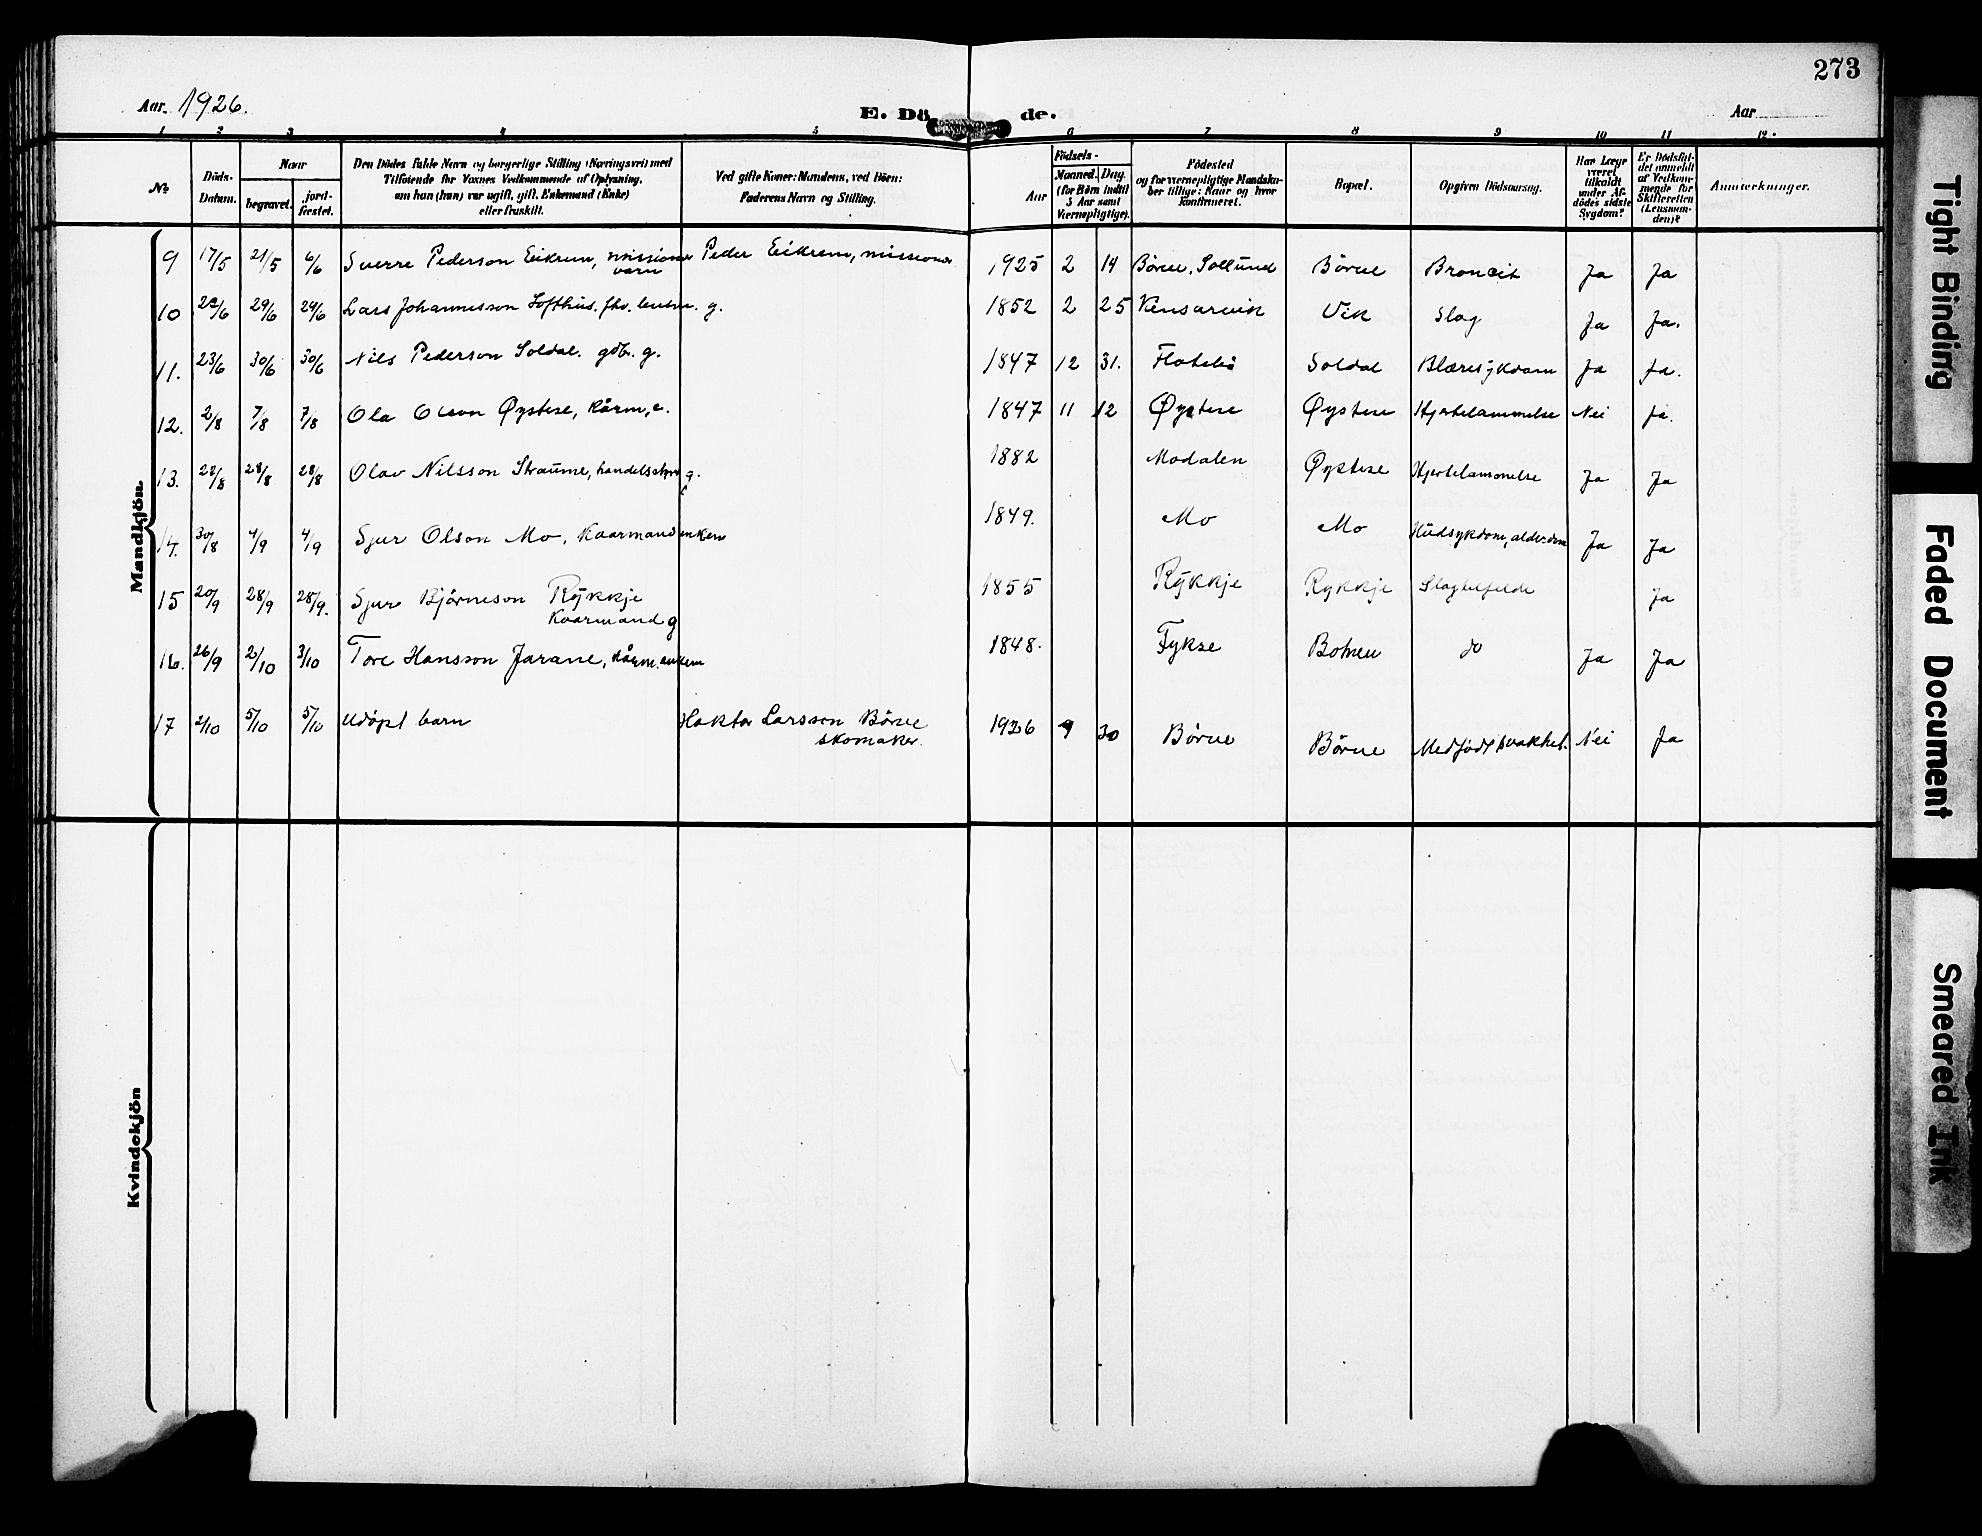 273
Aar 1926.
E. Dö de.
Aar
1 2 3 4 5 6 7 8 9 10 11 12.
No
Döds-
Datum.
Naar
begravet.
jord-
fæstet.
Den Dödes fulde Navn og borgerlige Stilling (Næringsvei) med
Tilföiende for Voxnes Vedkommende af Oplysning,
om han (hun) var ugift, gift, Enkemand (Enke)
eller fraskilt.
Ved gifte Koner: Mandens, ved Börn:
Faderens Navn og Stilling.
Födsels-
Aar
Maaned. Dag.
(for Börn indtil
5 Aar samt
Værnepligtige).
Födested
og for værnepligtige Mandska-
ber tillige: Naar og hvor
konfirmeret.
Bopæl.
Opgiven Dödsaarsag.
Har Læge
været
tilkaldt
under Af-
dödes sidste
Sygdom?
Er Dödsfal-
det anmeldt
af Vedkom-
mende for
Skifteretten
(Lensman-
den)?
Anmærkninger.
Mandkjön.
9 17/5 21/5 6/6 Sverre Pederson Eikrem, missionær Peder Eikrem, missionær 1925 2 14 Börve, Børve Broncit Ja Ja
barn
10 22/6 29/6 29/6 Lars Johannesson Lofthus. fhv. lensm. g. 1852 2 25 Kinsarvik Vik Slag Ja Ja.
11. 23/6 30/6 30/6 Nils Pederson Soldal. gdbr. g. 1847 12 31. Flotebö Soldal Blæresykdom Ja Ja.
12. 2/8 7/8 7/8 Ola Olson Øystese, kårm, e. 1847 11 12 Øystese Øystese Hjertelammelse Nei Ja.
13. 22/8 28/8 28/8 Olav Nilsson Straume, handelsstyr g. 1882 Modalen Øystese Hjertelammelse Ja Ja
14. 30/8 4/9 4/9 Sjur Olson Mo, Kaarmand enkem 1849. Mo Mo Hudsykdom, alderdom Ja Ja
15 20/9 28/9 28/9. Sjur Bjørneson Rykkje 1855 Rykkje Rykkje Slagtilfelde Ja
Kaarmand g
16. 26/9 2/10 3/10 Tore Hansson Jarane, kårm. enkem 1848. Fykse Botnen do Ja Ja
17 2/10 5/10 5/10 Udöpt barn Haktor Larsson Börve 1926 9 30 Børve Børve Medfödt svakhet. Nei Ja
skomaker.
Kvindekjön
Tight Binding
Faded Document
Smeared Ink